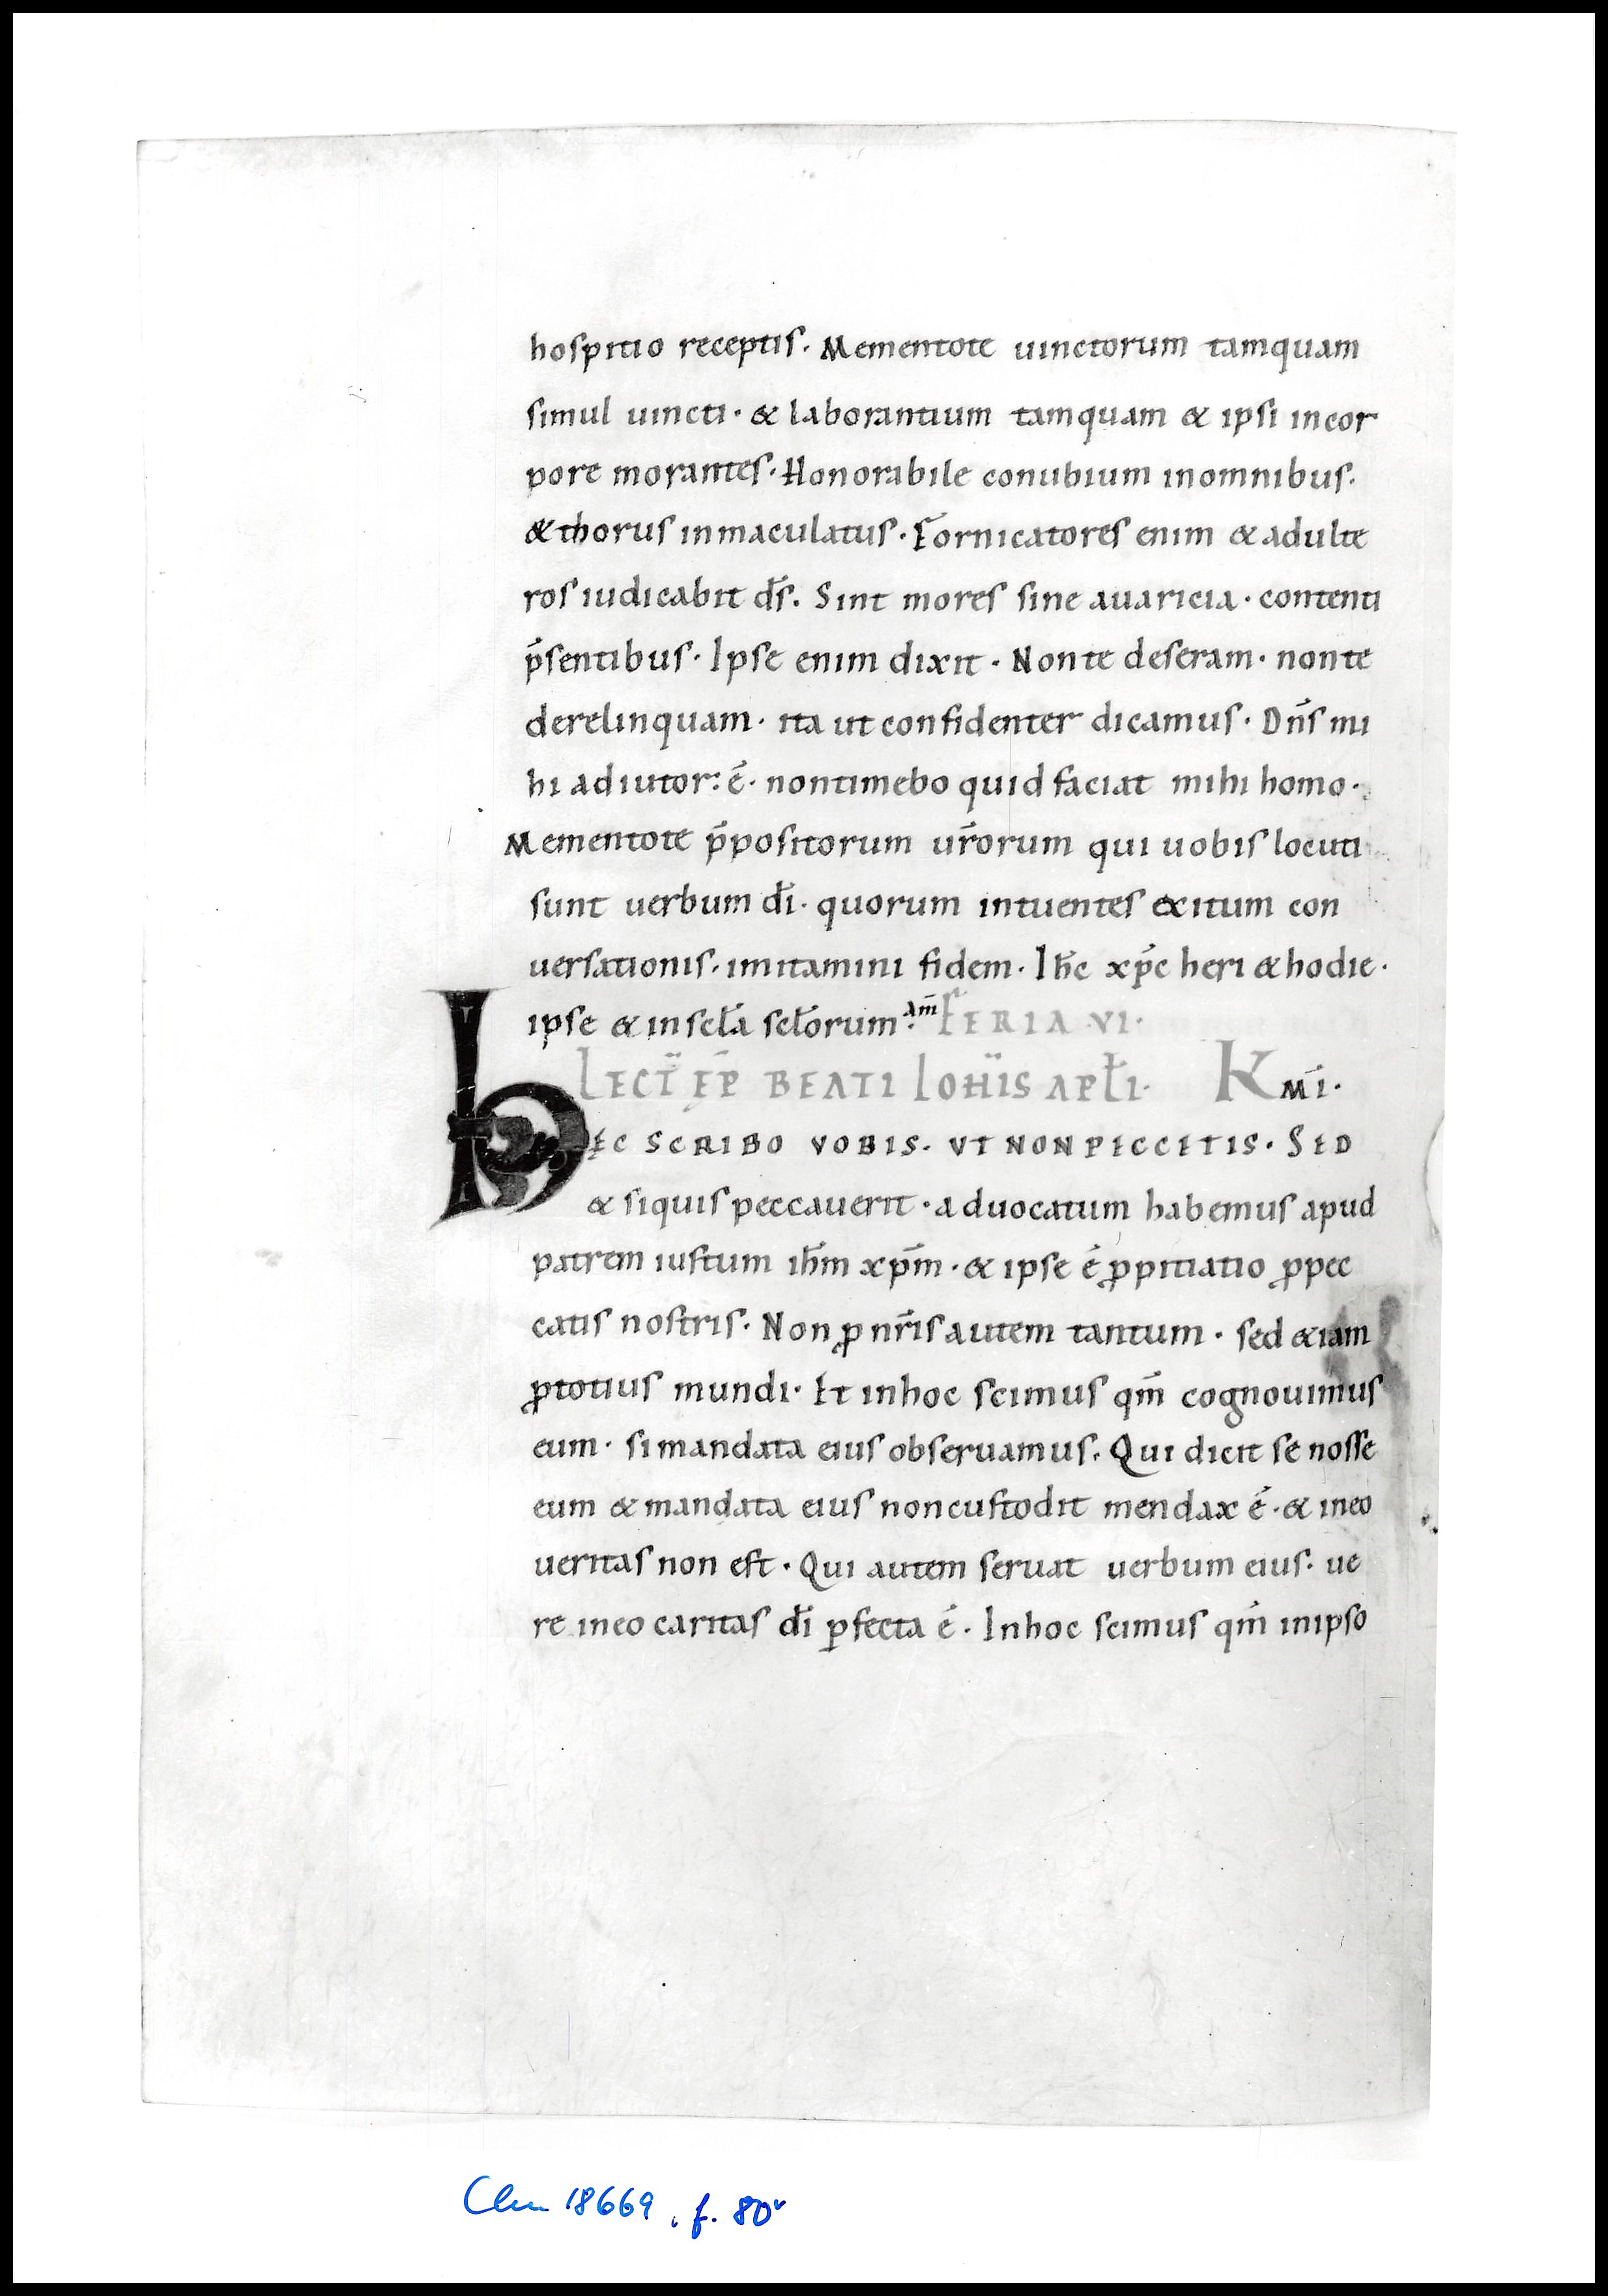 hospitio receptis. Mementote uinctorum tamquam
simul uincti· & laborantium tamquam & ipsi incor
pore morantes. Honorabile conubium inomnibus.
& thorus inmaculatus. Fornicatores enim & adulte
ros iudicabit d̄s. Sint mores sine auaricia· contenti
p̄sentibus. Ipse enim dixit. Non te deseram· non te
derelinquam· ita ut confidenter dicamus. Dn̄s mi
hi adiutor: ē· nontimebo quid faciat mihi homo.
Mementote p̄positorum ur̄orum qui uobis locuti
sunt uerbum d̄i· quorum intuentes exitum con
uersationis. imitamini fidem. Ih̄c xp̄c heri & hodie·
ipse & in scl̄a scl̄orum. am̄ FERIA VI·
LECT̄ EP̄ BEATI IOH̄IS APL̄I· K m̄i·
hęc SCRIBO VOBIS. VT NON PECCETIS. SED
& siquis peccauerit· aduocatum habemus apud
patrem iustum ih̄m xp̄m· & ipse ē ꝓpitiatio ꝓpec
catis nostris. Non ꝓ nr̄is autem tantum· sed &iam
ꝓtotius mundi. Et inhoc scimus qm̄ cognouimus
eum· si mandata eius obseruamus. Qui dicit se nosse
eum & mandata eius noncustodit mendax ē· & ineo
ueritas non est. Qui autem seruat uerbum eius· ue
re ineo caritas d̄i ꝑfecta ē. Inhoc scimus qm̄ inipso
Clm 18669, f. 80v